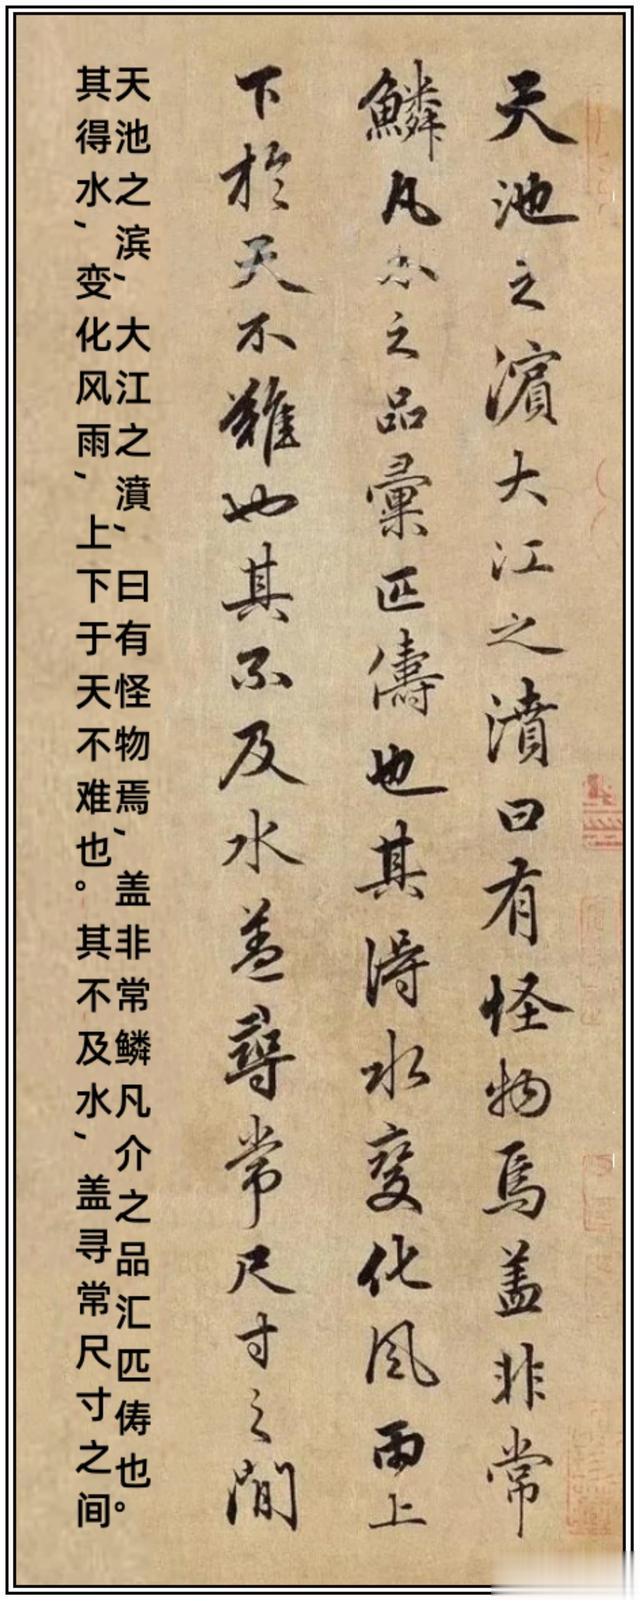 天池之濱大江之濆曰有怪物焉盖非常
鱗凡介之品彙匹儔也其得水變化風雨上
下於天不難也其不及水盖尋常尺寸之間
天池之滨，大江之濆，曰有怪物焉，盖非常鳞凡介之品汇匹俦也。
其得水，变化风雨，上下于天不难也。其不及水，盖寻常尺寸之间